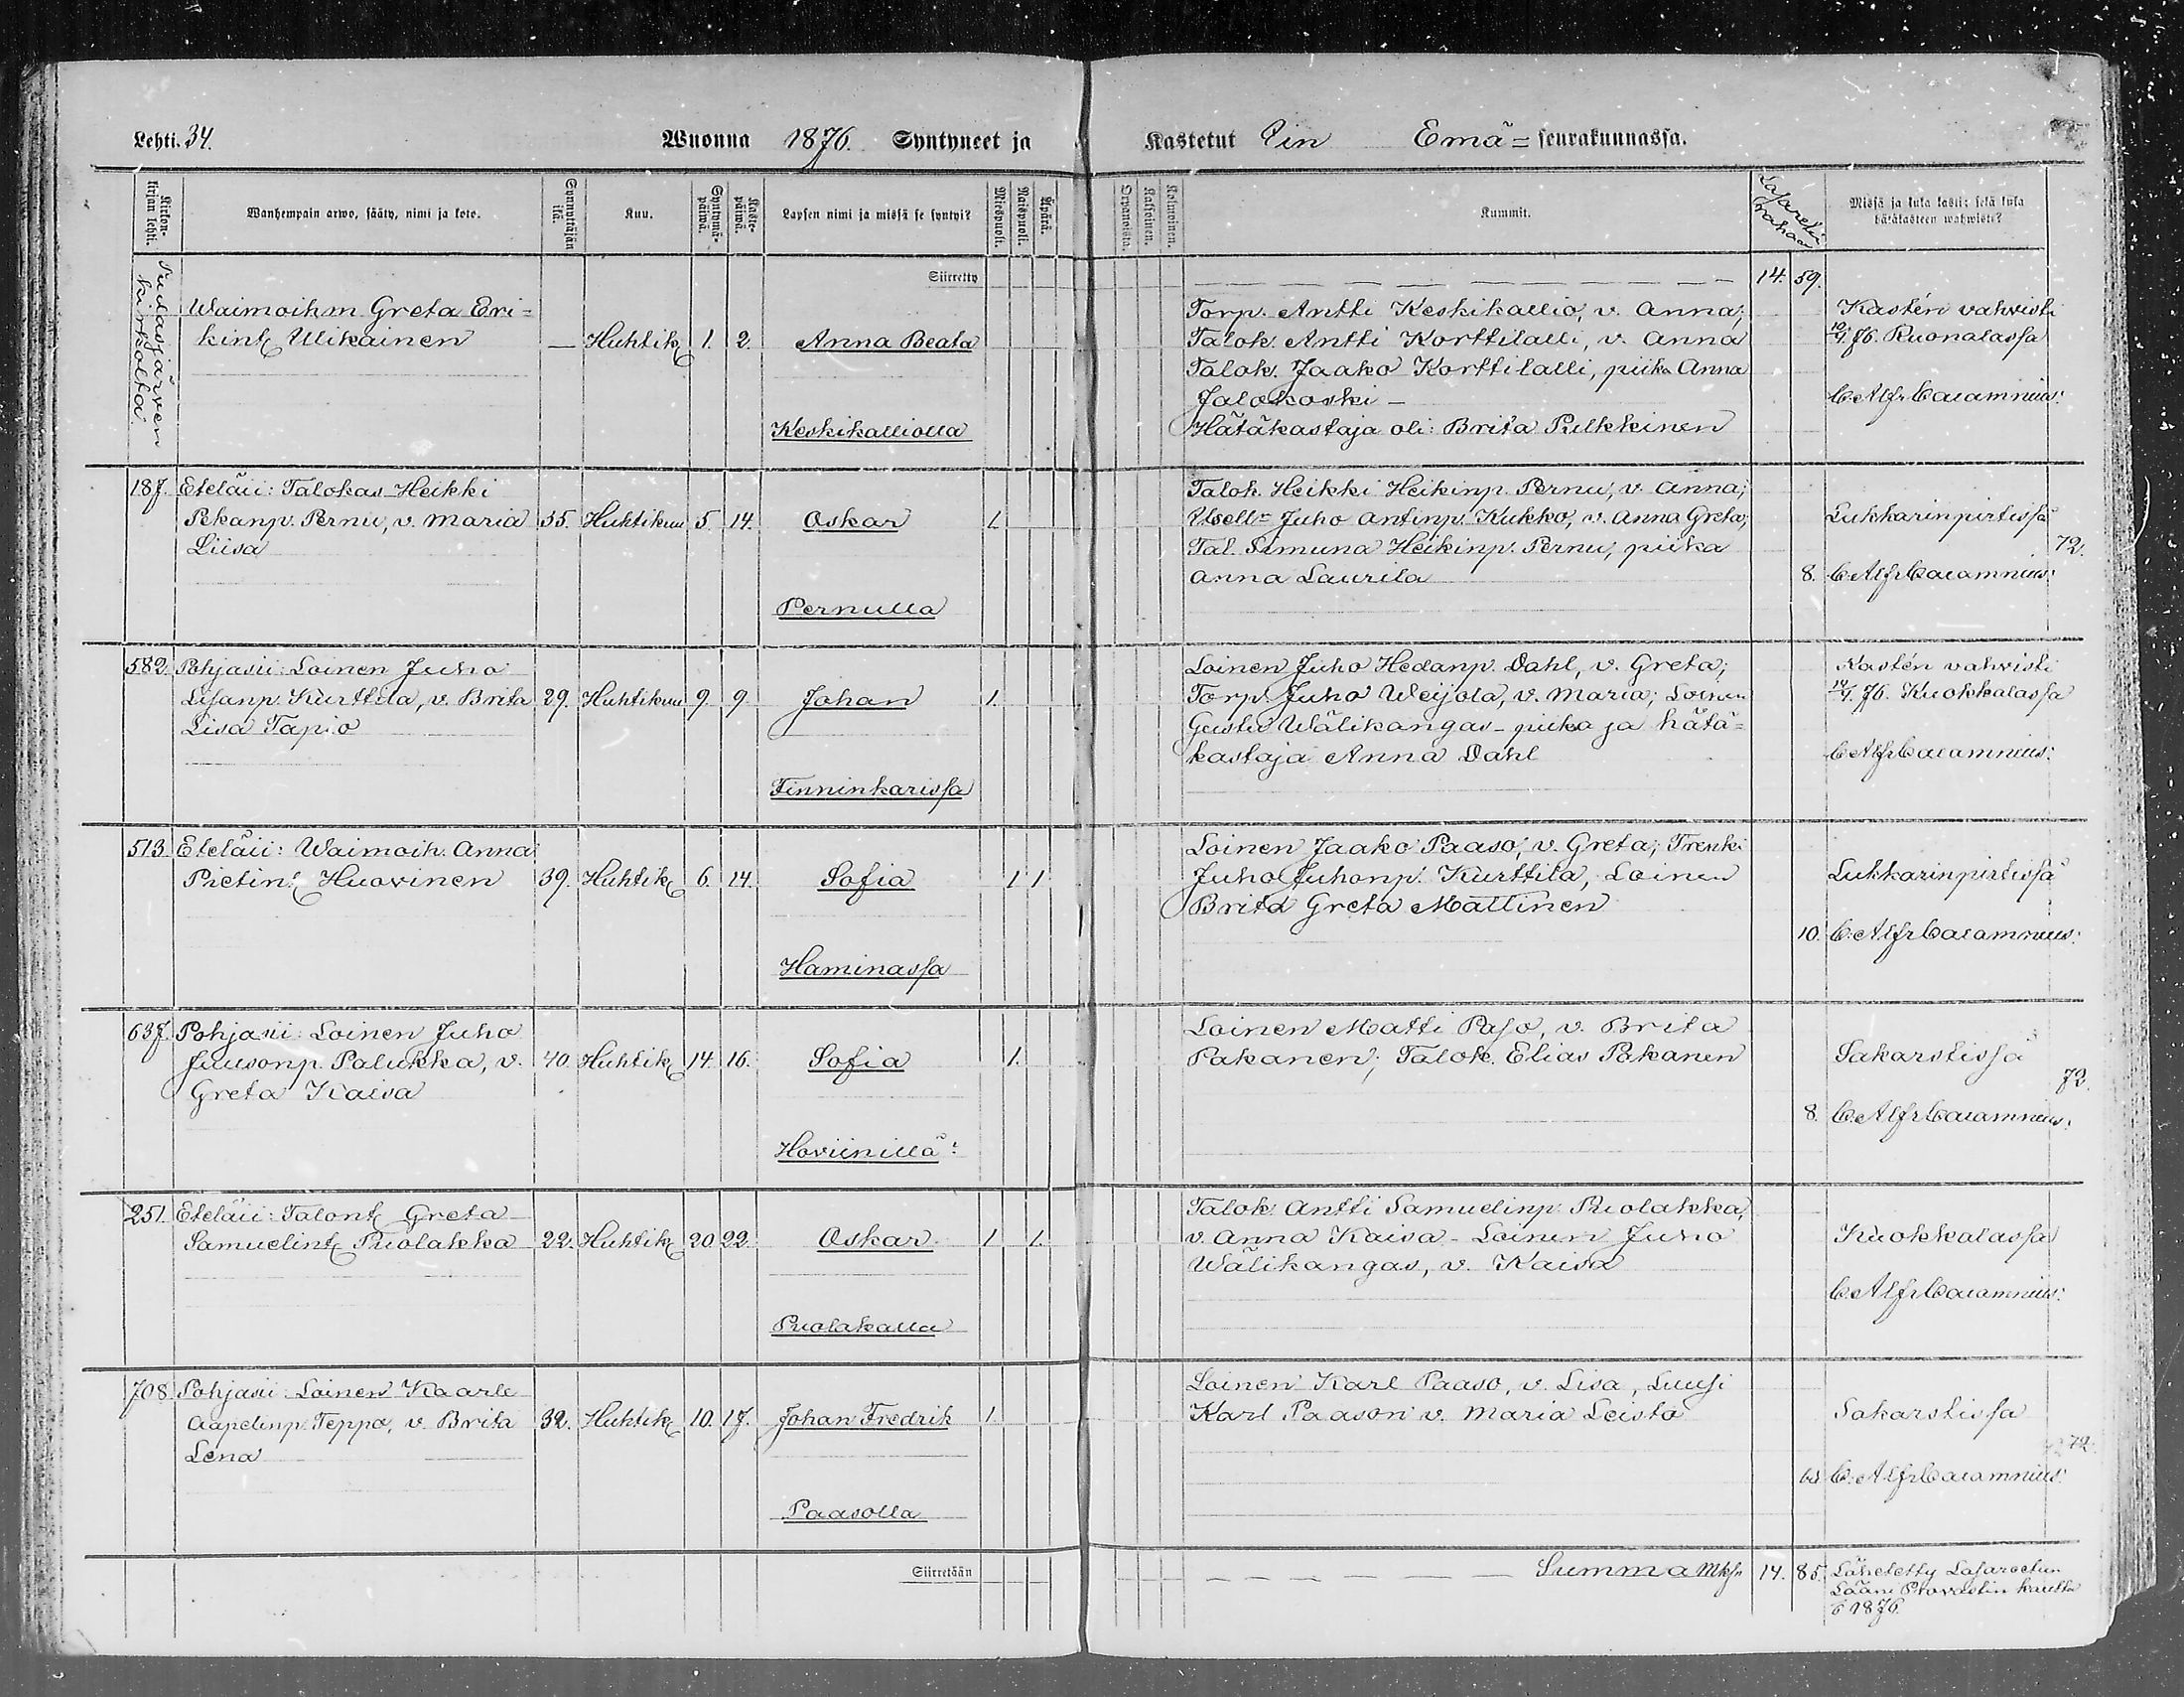 Lehti. 34. Wuonna 1876. Syntyneet ja Kastetut Iin Emä= seurakunnassa.
Kirkon-kirjan lehti. Wanhempain arwo, sääty, nimi ja koto. Synnyttäjän ikä. Kuu. Syntymä-päiwä. Kaste-päiwä. Lapsen nimi ja missä se syntyi? Miespuoli. Waispuoli. Äpärä.
Kolmoinen. Kummit. Lasaretin rahaa Missä ja kuka kasti; sekä kuka hätäkasteen wahwisti?
Siirretty 14. 59.
Pudasjärven kirkolta
Waimoihm Greta Eri=
kint. Ulikainen — Huhtik. 1. 2. Anna Beata
Keskikalliolla
Torp. Antti Keskikallio, v. Anna;
Talok. Antti Korttilalli, v. Anna
Talok. Jaako Korttilalli, piika Anna
Jalokoski —
Hätäkastaja oli: Brita Pulkkinen
Kastén vahvisti
76. Ruonalassa
C. Alfr. Calamnius:
187. Eteläii: Talokas Heikki
Pekanp. Pernu, v. Maria 35. Huhtikuu 5. 14. Oskar 1.
Liisa
Pernulla
Talok. Heikki Heikinp. Pernu, v. Anna;
Itsell= Juho Antinp. Kukko, v. Anna Greta;
Tal. Simuna Heikinp. Pernu, piika
Anna Laurila
Lukkarinpirtissä
72.
8. C. Alfr. Calamnius:
582. Pohjasii: Loinen Juho
Kurttila, v. Brita 29. Huhtikuu 9. 9. Johan 1.
Lisa Tapio
Tinninkarissa
Loinen Juho Hedanp. Dahl, v. Greta;
Torp. Juho Weijola, v. Maria; Loinen
Wälikangas - piika ja hätä=
kastaja Anna Dahl
Kastén vahvisti
76. Kuokkalassa
C. Alfr. Calamnius:
513. Eteläii: Waimoih. Anna
Pietint. Huovinen 39. Huhtik. 6. 14. Sofia 1 1
Haminassa
Loinen Jaako Paaso, v. Greta; Trenki
Juho Juhonp. Kurttila, Loinen
Brita Greta Mattinen
Lukkarinpirtissä
10. C. Alfr. Calamnius:
637. Pohjasii: Loinen Juho
Juusonp. Palukka, v. 40. Huhtik. 14. 16. Sofia 1.
Greta Kaisa
Hoviinillä:
Loinen Matti Paso, v. Brita
Pakanen; Talok. Elias Pakanen
Sakarstissä
72.
8. C. Alfr. Calamnius:
251. Eteläii: Talont. Greta
Samuelint. Puolakka 22. Huhtik. 20. 22. Oskar 1 1.
Puolakalla
Talok. Antti Samuelinp. Puolakka,
v. Anna Kaisa - Loinen Juho
Wälikangas, v. Kaisa
Kuokkalassa
C. Alfr. Calamnius:
708. Pohjasii: Loinen Kaarle
Aapelinp. Teppo, v. Brita 32. Huhtik. 10. 17. Johan Fredrik 1.
Lena
Paasolla
Loinen Karl Paaso, v. Lisa,
Karl Paason v. Maria Leisto
Sakarstissa
72.
C. Alfr. Calamnius:
Siirretään Summa Mks 14. 85. Lähetetty Lasaretin
Lääni Provastin kautta
1876.